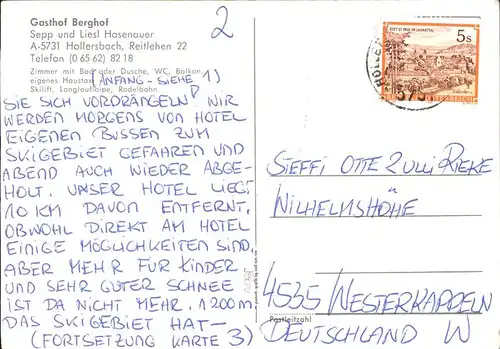 Gasthof Berghof
Sepp und Liesl Hasenauer
A-5731 Hollersbach, Reitlehen 22
Telefon (0 65 62) 82 18
Zimmer mit Bad oder Dusche, WC, Balkon,
eigenes
Skilift, Langlaufloipe, Rodelbahn
2
(ANFANG - SIEHE 1)
SIE SICH VORDRÄNGELN! WIR
WERDEN MORGENS VON HOTEL
EIGENEN BUSSEN ZUM
SKIGEBIET GEFAHREN UND
ABEND AUCH WIEDER ABGE-
HOLT. UNSER HOTEL LIEGT
10 KM DAVON ENTFERNT,
OBWOHL DIREKT AM HOTEL
EINIGE MÖGLICHKEITEN SIND,
ABER MEHR FÜR KINDER
UND SEHR GUTER SCHNEE
IST DA NICHT MEHR. 1200m
DAS SKIGEBIET HAT-
(FORTSETZUNG KARTE 3)
STIFT ST. PAUL IM LAVANTTAL
5s
REPUBLIK ÖSTERREICH
HOLLER
573
STEFFI OTTE
WILHELMSHÖHE
4535 WESTERKAPPELN
Postleitzahl
DEUTSCHLAND W